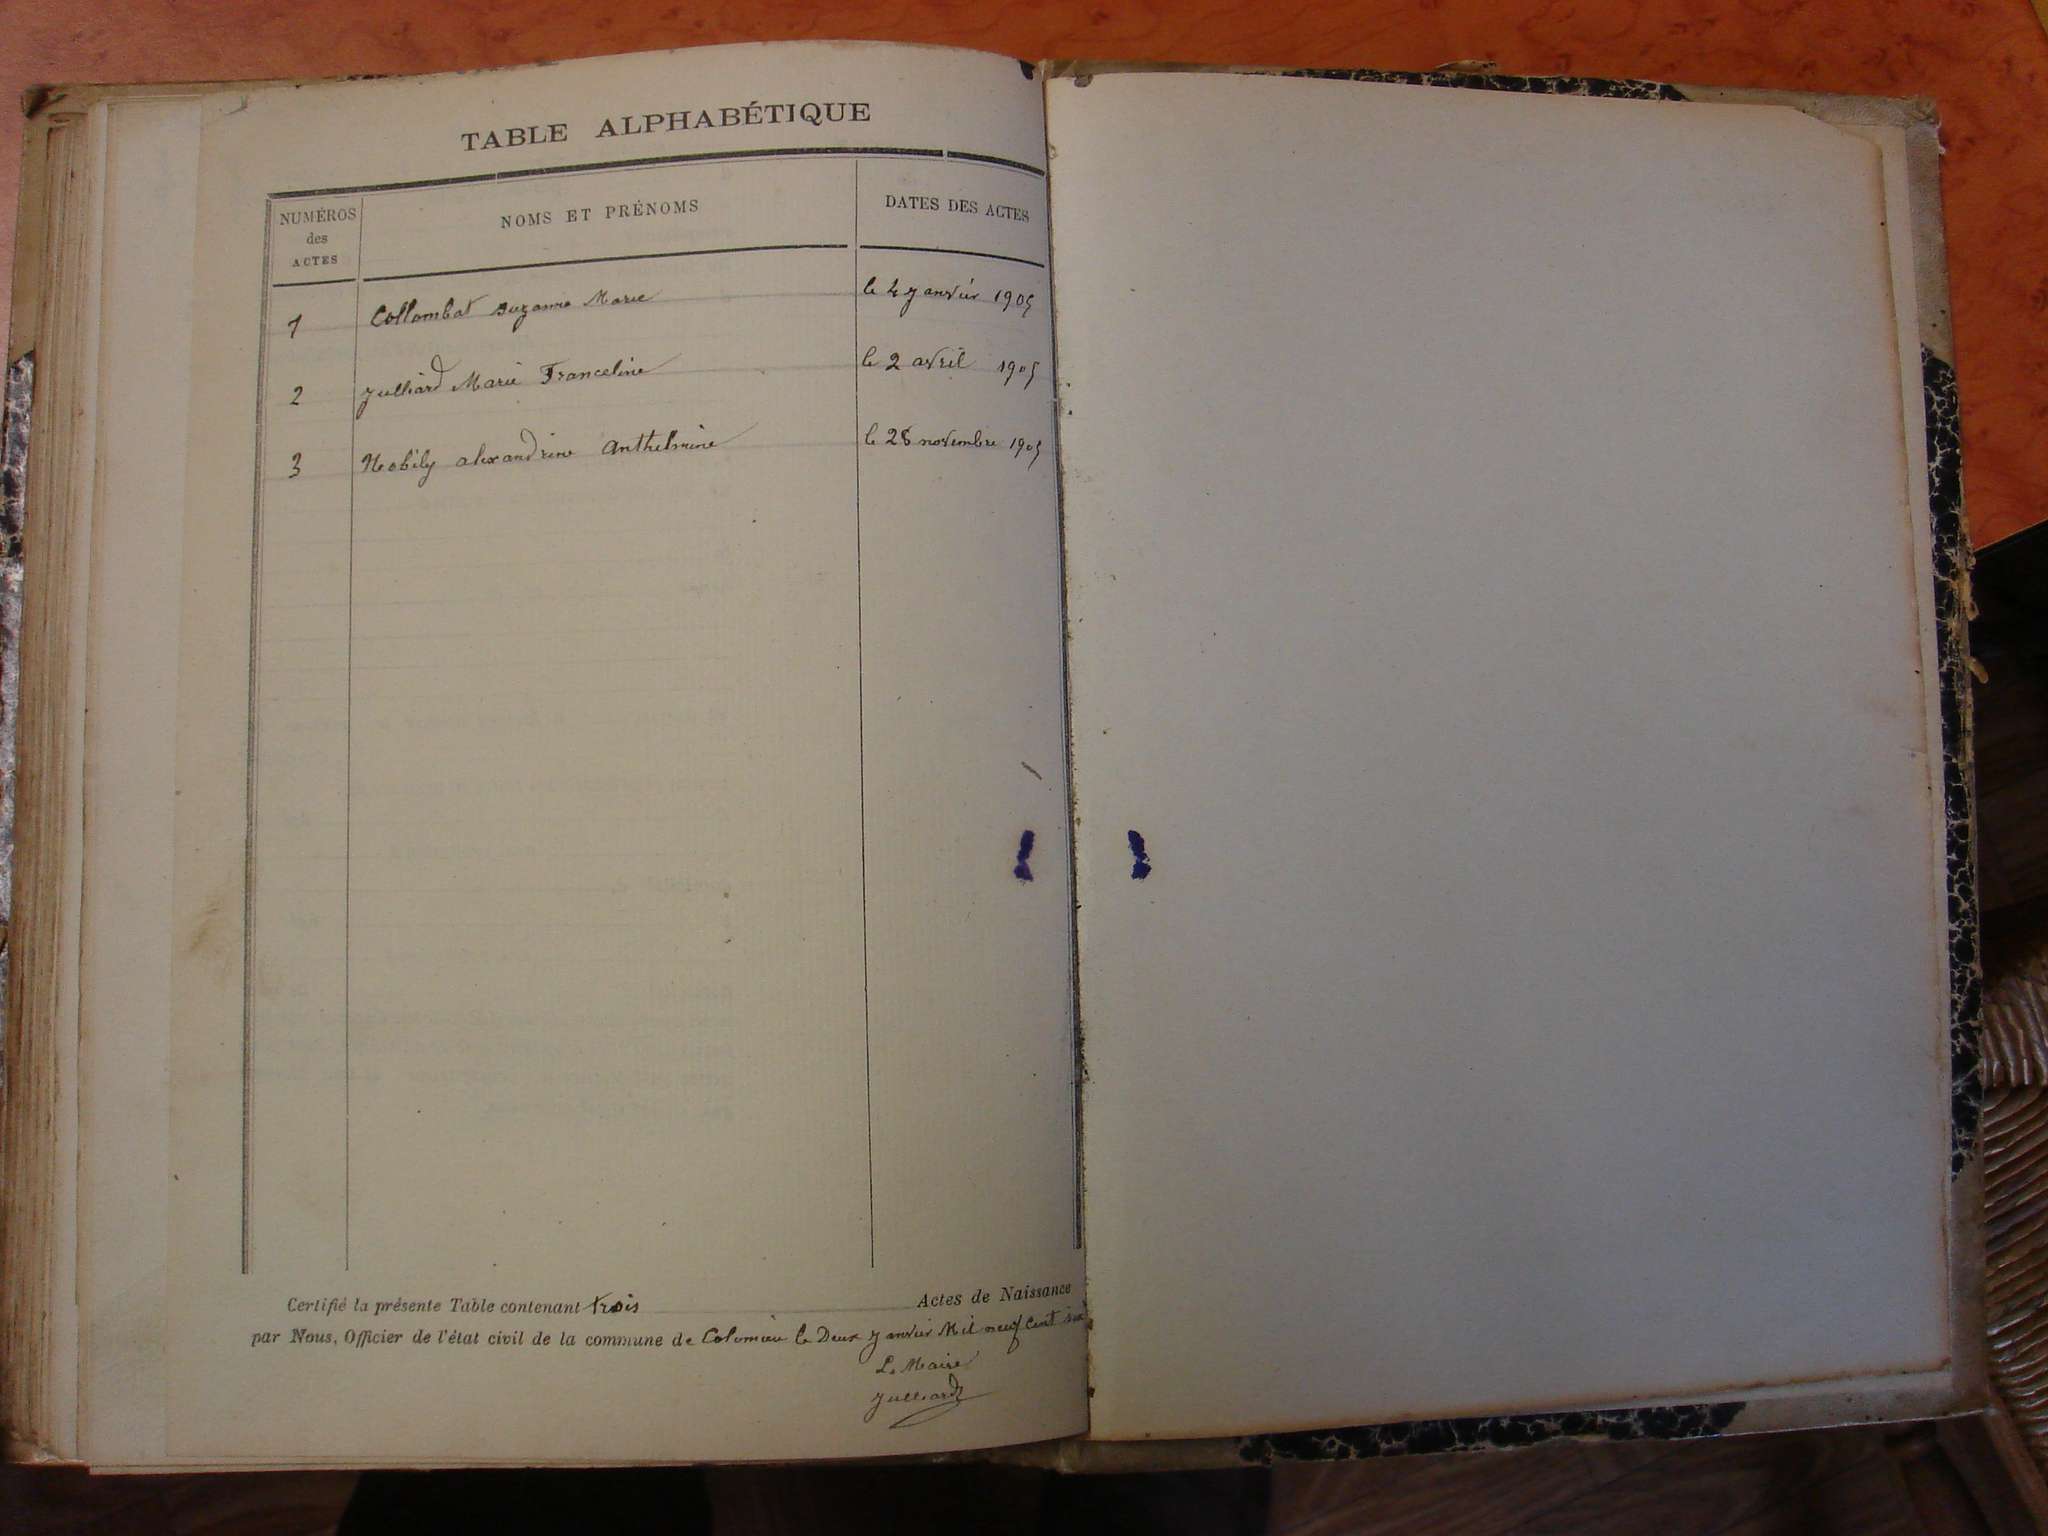 TABLE ALPHABÉTIQUE
NUMÉROS des ACTES
NOMS ET PRÉNOMS
DATES DES ACTES
1 Collombat Suzanne Marie le 4 janvier 1905
2 Julliard Marie Franceline le 2 avril 1905
3 alexandrine anthelmine le 28 novembre 1905
Certifié la présente Table contenant trois Actes de Naissance
par Nous, Officier de l'état civil de la commune de Colomieu le Deux janvier Mil neuf Cent six
Le Maire
Julliard